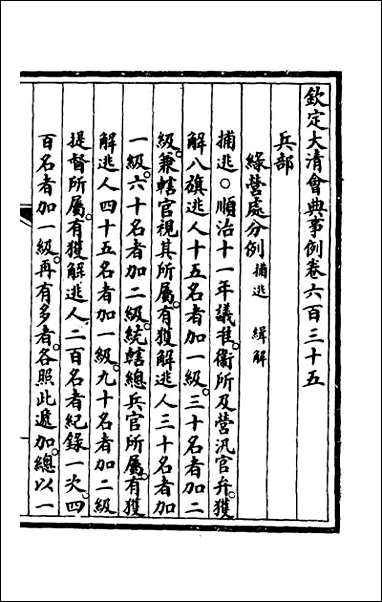 欽定大清會典事例卷六百三十五
兵部
綠營處分例 捕逃 緝解
捕逃○順治十一年議准。衞所及營汛官弁。獲
解八旗逃人十五名者加一級。三十名者加二
級。兼轄官視其所屬。有獲解逃人三十名者加
一級。六十名者加二級。統轄總兵官所屬。有獲
解逃人四十五名者加一級。九十名者加二級
提督所屬。有獲解逃人二百名者紀錄一次。四
百名者加一級。再有多者。各照此遞加。總以一